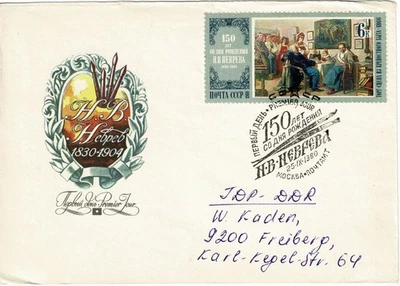 150
ЛЕТ
СО ДНЯ РОЖДЕНИЯ
Н.В. НЕВРЕВА
ПОЧТА СССР
6К
Н.В.
Неврев
1830-1904
Первый день Premier Jour
СССР
ПЕРВЫЙ ДЕНЬ • PREMIER JOUR
150 ЛЕТ
СО ДНЯ РОЖДЕНИЯ
Н•В•НЕВРЕВА
25•IX•1980
МОСКВА • ПОЧТАМТ
ГДР - DDR
W. Kaden,
9200 Freiberg,
Karl-Kegel-Str. 64